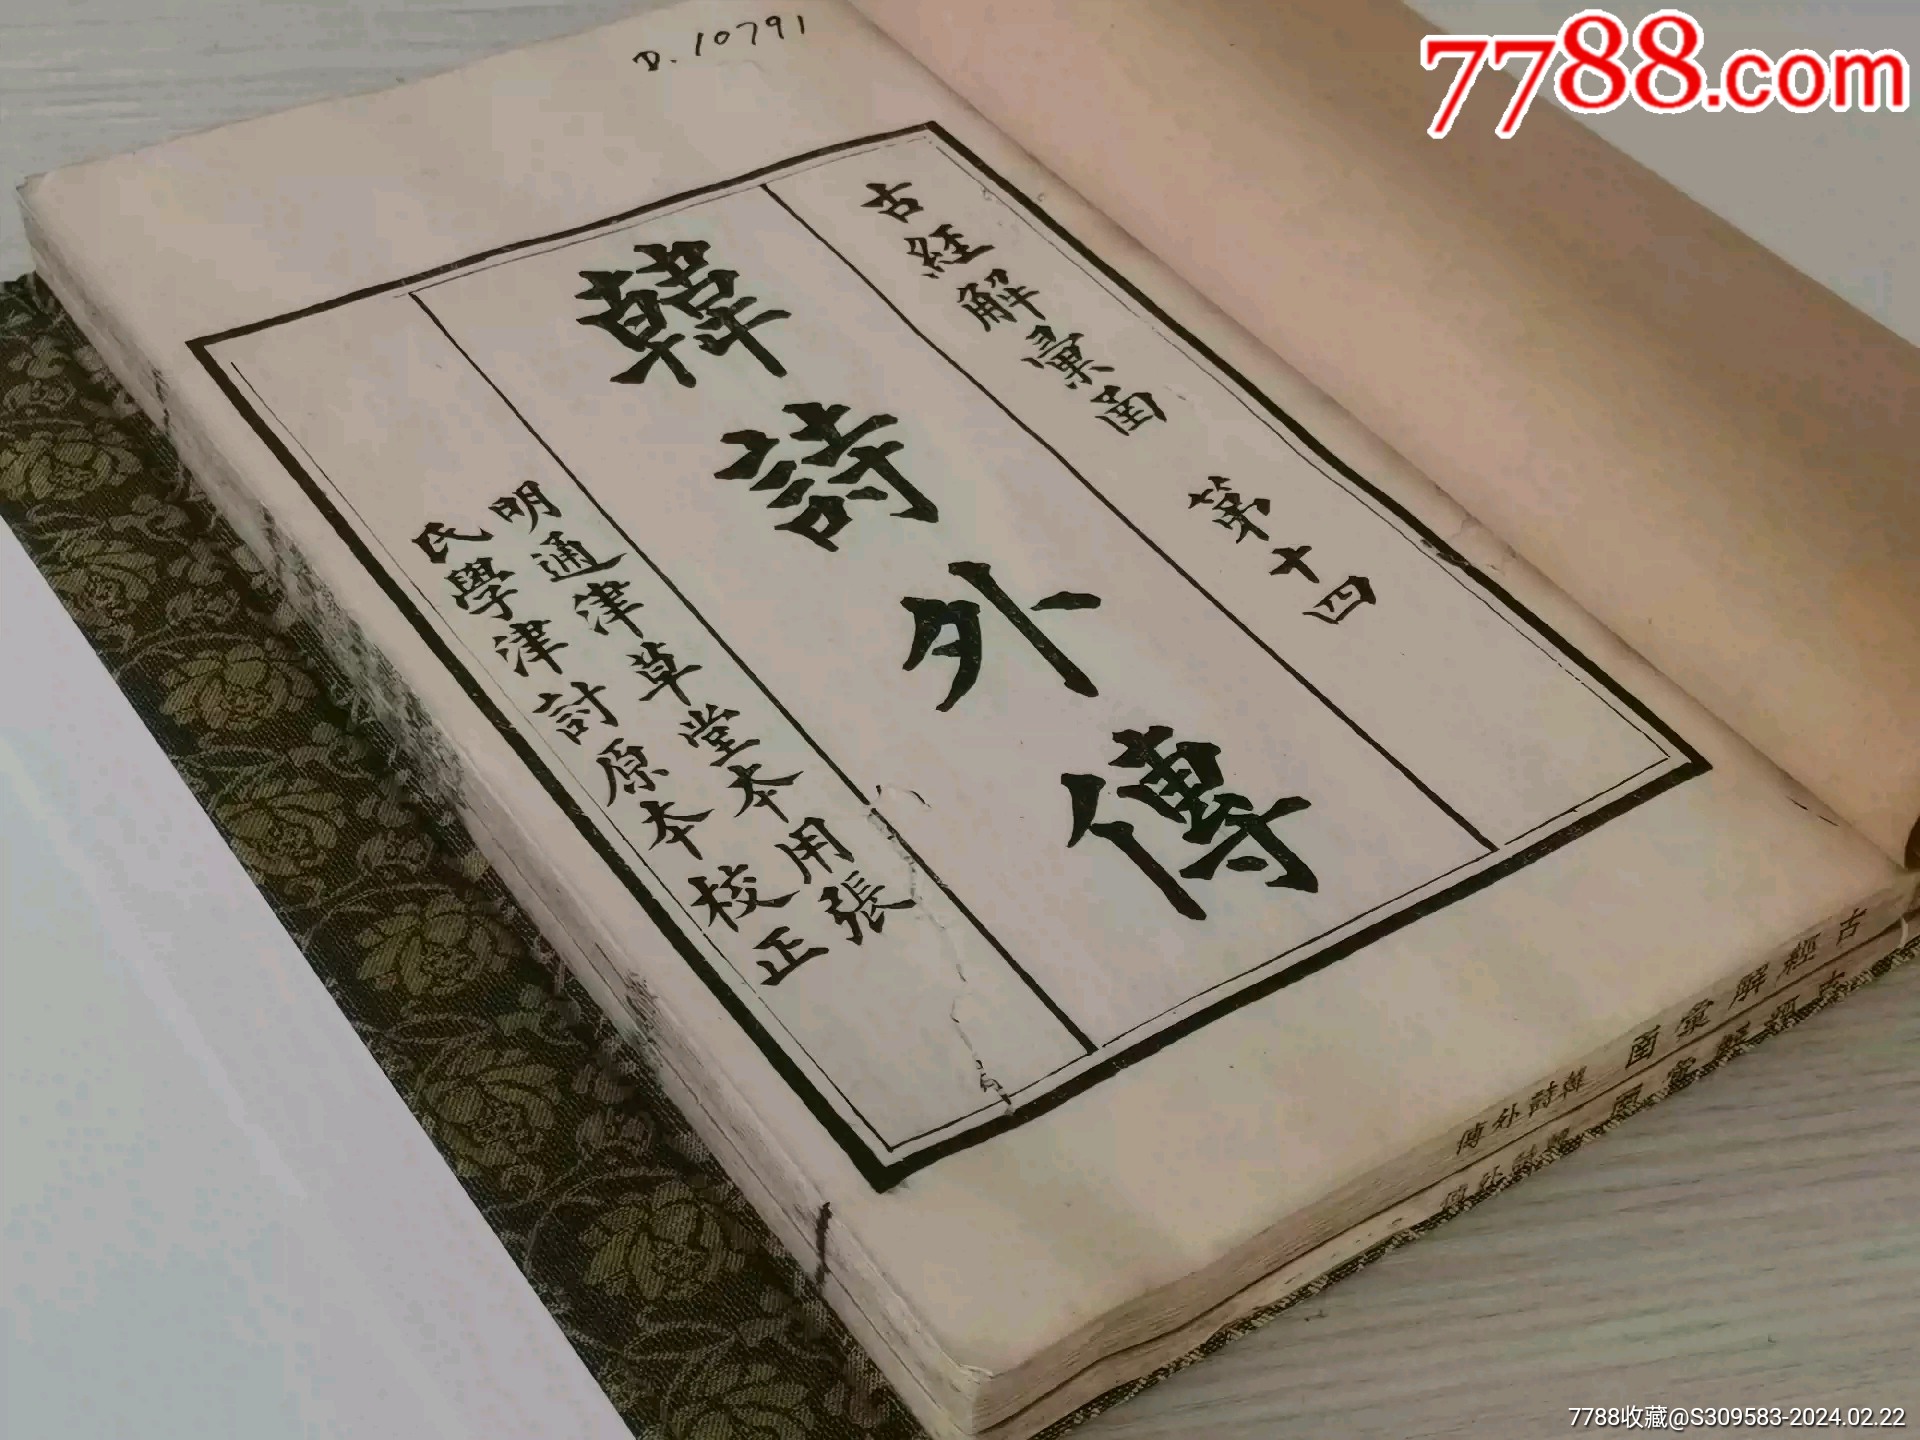 D.10791
7788.com
古經解彙函 第十四
韓詩外傳
明通津草堂本用張
氏學津討原本校正
古經解彙函 韓詩外傳
古經解彙函 韓詩外傳
7788收藏@S309583-2024.02.22